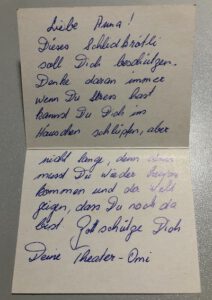 Liebe Anna!
Dieses Schildkrötli
soll Dich beschützen.
Denke daran immer
wenn Du Stress hast
kannst Du Dich im
Häuschen schlüpfen, aber
nicht lange, denn
musst Du wieder
kommen und der Welt
zeigen, dass Du noch da
bist Gott schütze Dich
Deine Theater-Omi